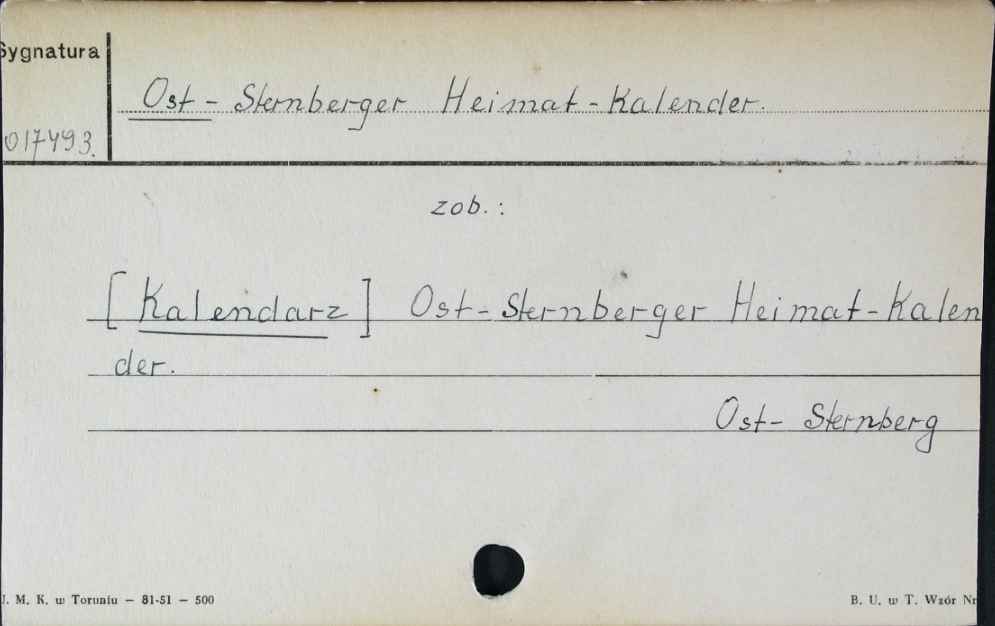 Sygnatura
Ost - Sternberger Heimat - Kalender.
017493.
zob. :
[ Kalendarz ] Ost - Sternberger Heimat - Kalen
der.
Ost - Sternberg
U. M. K. w Toruniu — 81-51 — 500
B. U. w T. Wzór Nr